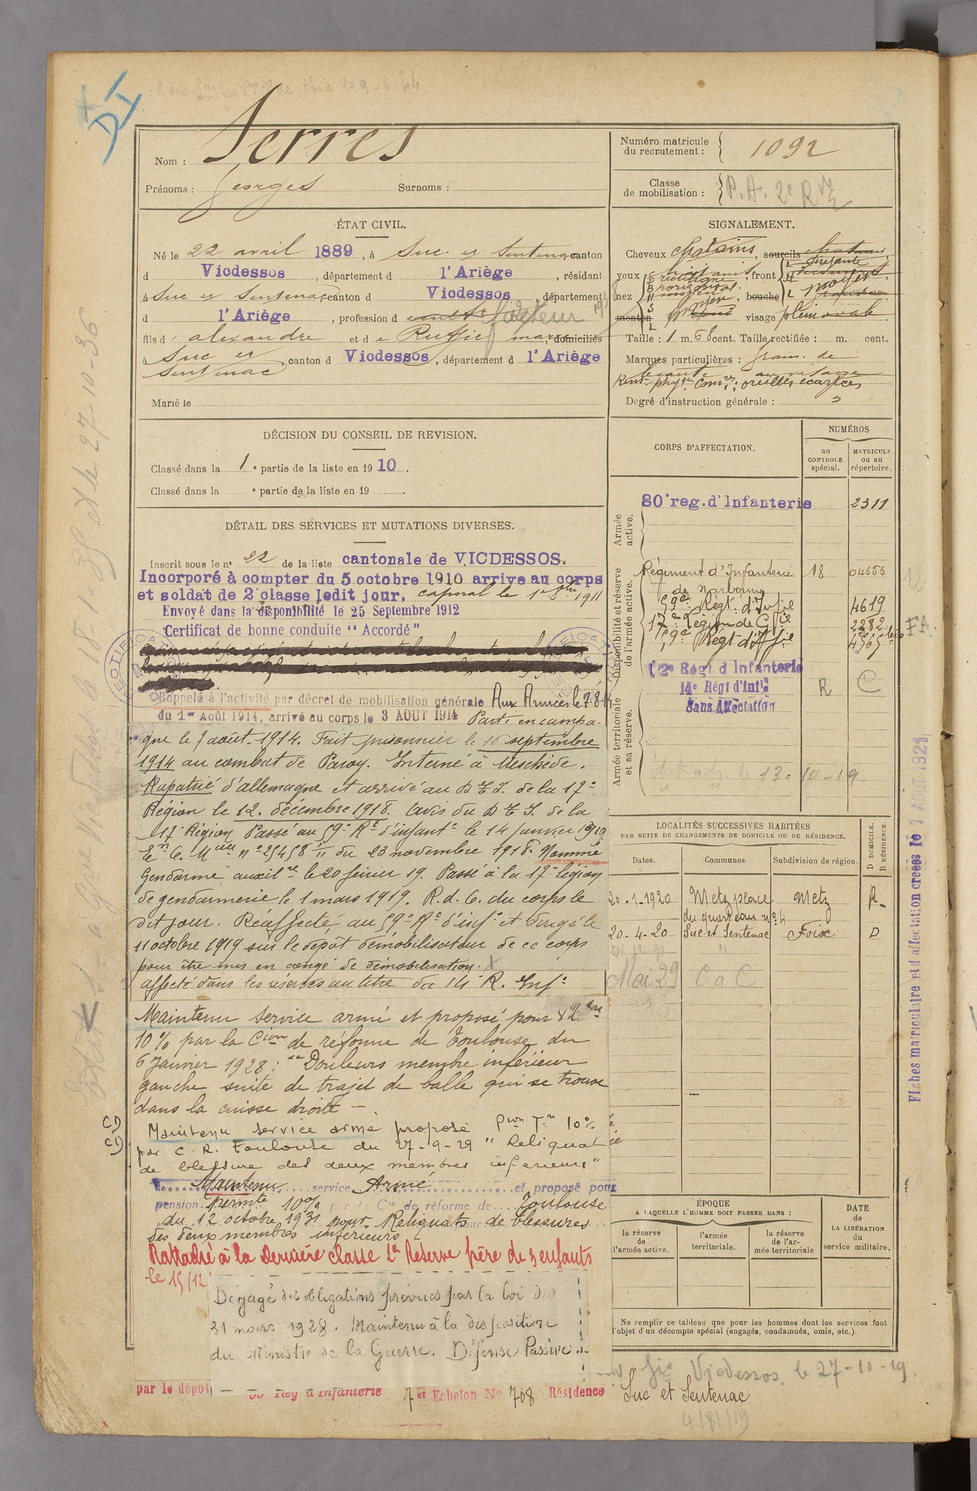 Nom : Serres
Prénoms : Georges Surnoms :
Numéro matricule du recrutement : 1092
Classe de mobilisation : P.A. 2e Rve
ÉTAT CIVIL.
Né le 22 avril 1889, à Suc et Sentenac canton
d Vicdessos, département d l'Ariège, résidant
à Suc et Sentenac canton d Vicdessos, département
d l'Ariège, profession d facteur
fils d' alexandre et de Ruffié domiciliés
à Suc et Sentenac, canton d Vicdessos, département d l'Ariège
Marié le
SIGNALEMENT.
Cheveux châtains, sourcils
yeux, front
nez, bouche
menton visage plein ovale
Taille : 1 m. 6 cent. Taille rectifiée : m. cent.
Marques particulières : grain de
Rens. phys. com. : oreilles écartées
Degré d'instruction générale : 3
DÉCISION DU CONSEIL DE REVISION.
Classé dans la 1e partie de la liste en 1910.
Classé dans la e partie de la liste en 19 .
DÉTAIL DES SERVICES ET MUTATIONS DIVERSES.
Inscrit sous le n° 22 de la liste cantonale de VICDESSOS.
Incorporé à compter du 5 octobre 1910 arrivé au corps
et soldat de 2e classe ledit jour, caporal le 1911
Envoyé dans la disponibilité le 25 Septembre 1912
Certificat de bonne conduite "Accordé"
Rappelé à l'activité par décret de mobilisation générale Aux Armées le 7.8.14
du 1er Août 1914, arrivé au corps le 3 AOUT 1914 Parti en campa-
gne le 7 août 1914. Fait prisonnier le 16 septembre
1914 au combat de Paroy. Interné à Meschède.
Rapatrié d'allemagne et arrivé au D.E.I. de la 17e
Région le 12 décembre 1918. avis du D.E.I. de la
17e Région Passé au 59e Rt d'infantie le 14 janvier 1919
Cielle n° 25458 du 23 novembre 1918. Nommé
Gendarme auxilre le 20 février 19. Passé à la 17e légion
de gendarmerie le 1 mars 1919. R.d.C. du corps le
dit jour. Réaffecté au 59e Rt d'infie et dirigé le
11 octobre 1919 sur le dépôt démobilisateur de ce corps
pour être mis en congé de démobilisation.
affecté dans les réserves au titre du 14 R. Infie
Maintenu service armé et proposé pour
10% par la Cion de réforme de Toulouse du
6 Janvier 1928 : "Douleurs membre inférieur
gauche suite de trajet de balle qui se trouve
dans la cuisse droite -.
Maintenu service armé proposé Pion Tre 10%
par C. R. Toulouse du 27-9-29 "Reliquat
de blessure des deux membres inférieurs"
Maintenu service Armé et proposé pour
pension permte 10% Cion de réforme de Toulouse
du 12 octobre 1931 pour Reliquats de blessures
des deux membres inférieurs
Rattaché à la Dernière classe 2e Réserve père de 3 enfants
le 15/12
Dégagé des obligations prévues par la loi du
31 mars 1928. Maintenu à la disposition
du Ministre de la Guerre. Défense Passive
par le dépôt Rég d'Infanterie 7er Echelon No 708 Résidence Suc et Sentenac
CORPS D'AFFECTATION.
NUMÉROS
au CONTROLE spécial.
MATRICULE ou au répertoire.
Armée active.
80e reg. d'Infanterie 2311
Disponibilité et réserve de l'armée active.
Régiment d'Infanterie de Narbonne 18 04556
59e Regt d'Infie 4619
17e Légion de Gie 2282
59e Regt d'Infie
Armée territoriale et sa réserve.
12e Régt d'Infanterie
14e Régt d'Infie R C
Sans Affectation
13-10-19
LOCALITÉS SUCCESSIVES HABITÉES
PAR SUITE DE CHANGEMENTS DE DOMICILE OU DE RÉSIDENCE.
Dates. Communes Subdivision de région. D DOMICILE. R RÉSIDENCE.
20-1-1920 Metz place Metz R
20-4-20 Suc et Sentenac Foix D
Mai 29 C a C
ÉPOQUE
A LAQUELLE L'HOMME DOIT PASSER DANS :
la réserve de l'armée active.
l'armée territoriale.
la réserve de l'armée territoriale
DATE de LA LIBÉRATION du service militaire.
Ne remplir ce tableau que pour les hommes dont les services font
l'objet d'un décompte spécial (engagés, condamnés, omis, etc.).
Vicdessos, le 27-10-19
Fiches matriculaire et d'affectation créées le 1 AOUT 1921